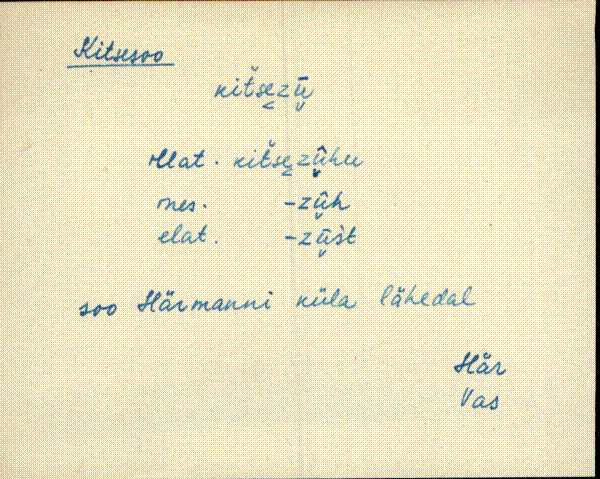 Kitsesoo
kitše̬zū̬
illat. kitše̬zû̬hu
ines. -zû̬h
elat. -zū̬št
soo Härmanni küla lähedal
Här
Vas